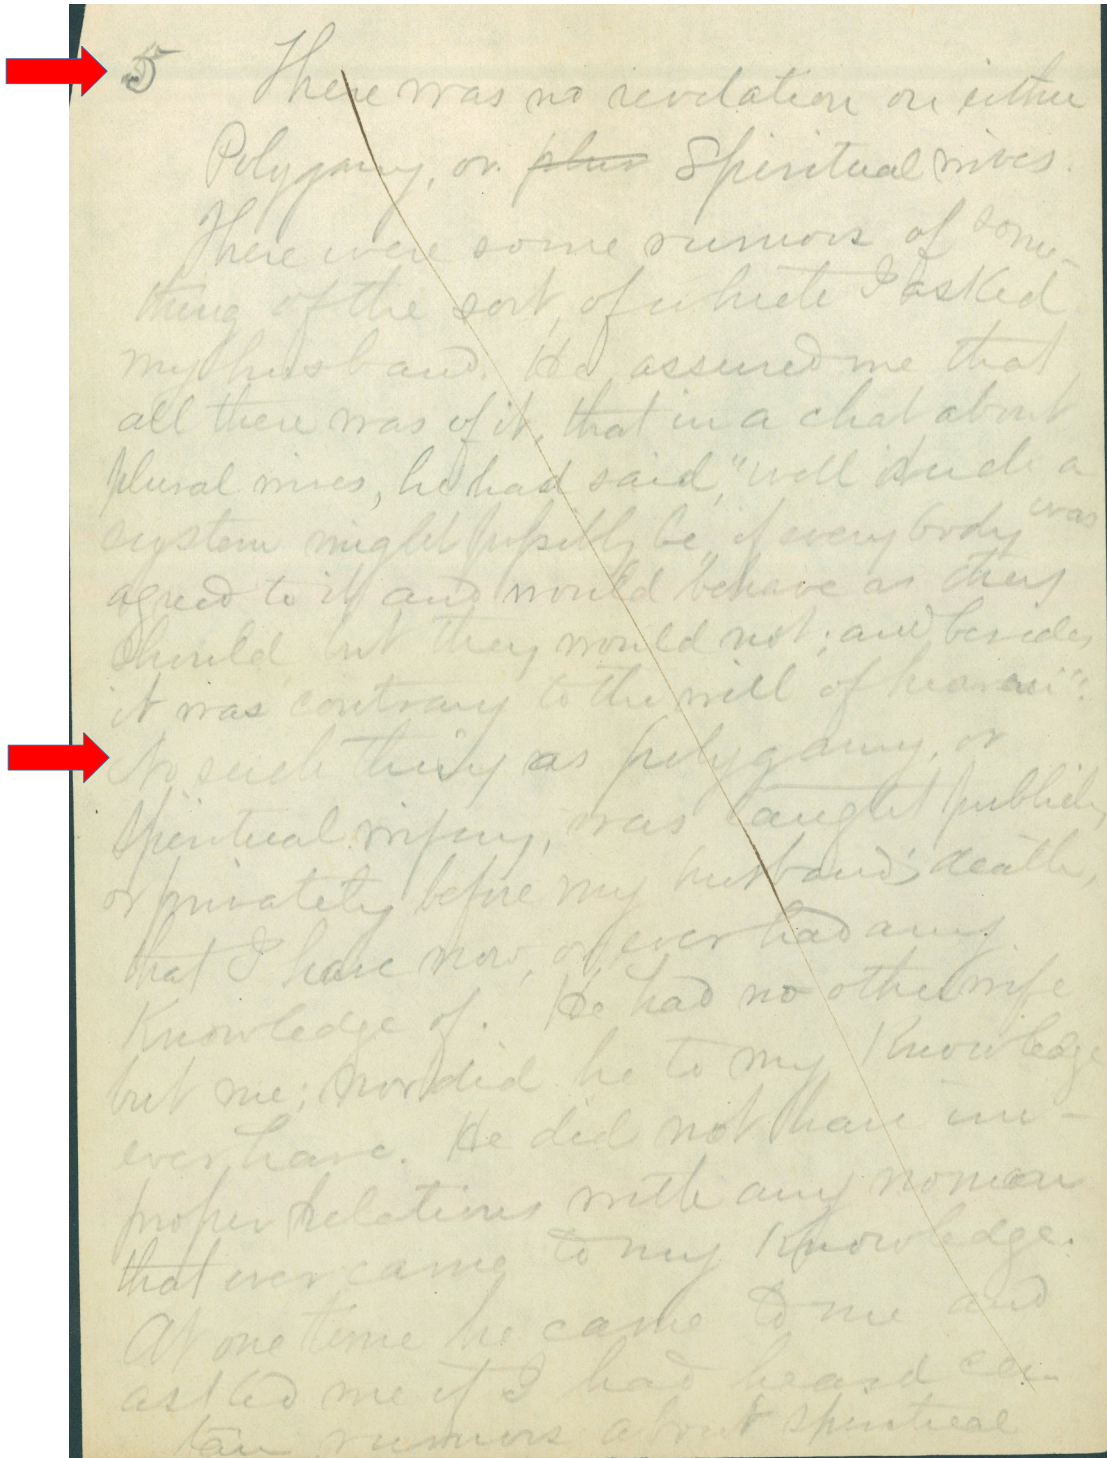 5 There was no revelation on either
Polygamy, or plur Spiritual wives.
There were some rumors of some-
thing of the sort, of which I asked
my husband. He assured me that
all there was of it, that in a chat about
plural wives, he had said, "well such a
system might possibly be, if everybody was
agreed to it and would behave as they
should, but they would not; and besides,
it was contrary to the will of heaven".
No such thing as polygamy, or
spiritual wifery, was taught publicly
or privately before my husband's death,
that I have now, or ever had any
Knowledge of. He had no other wife
but me; nor did he to my Knowledge
ever have. He did not have im-
proper relations with any woman
that ever came to my Knowledge.
At one time he came to me and
asked me if I had heard cer-
tain rumors about spiritual